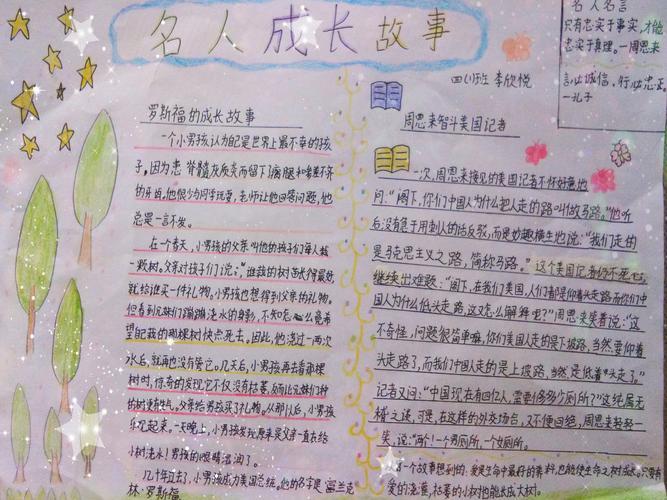 名人成长故事
名人名言
只有忠实于事实,才能
忠实于真理。—周恩来
言必诚信,行必忠正。
—孔子
四(1)班 李欣悦
罗斯福的成长故事
一个小男孩认为自己是世界上最不幸的孩
子,因为患脊髓灰质炎而留下了瘸腿和参差不齐
的牙齿。他很少与同学玩耍,老师让他回答问题,他
总是一言不发。
在一个春天,小男孩的父亲叫他的孩子们每人栽
一颗树。父亲对孩子们说:,"谁栽的树苗长得最好,
就给谁买一件礼物。小男孩也想得到父亲的礼物。
但看到兄妹们蹦蹦跳浇水的身影,不知怎么竟希
望自己栽的那棵树快点死去。因此,他浇过一两次
水后,就再也没有管它。几天后,小男孩再去看那棵
树时,惊奇的发现它不仅没有枯萎,反而比兄妹们种
的树更有生气。父亲给男孩买了礼物。从那以后,小男孩
乐观起来。一天晚上,小男孩发现原来是父亲一直去给
小树浇水!男孩的眼睛湿润了。
几十年过去了,小男孩成为美国总统。他的名字是富兰克
林·罗斯福
周恩来智斗美国记者
一次,周恩来接见的美国记者不怀好意地
问:"阁下,你们中国人为什么把人走的路叫做马路。"他听
后没有急于用刺人的话反驳,而是妙趣横生地说:"我们走的
是马克思主义之路,简称马路。"这个美国记者仍不死心,
继续出难题:"阁下,在我们美国,人们都是仰着头走路,而你们中
国人为什么低头走路,这又怎么解释呢?"周恩来笑着说:"这
不奇怪,问题很简单嘛,你们美国人走的是下坡路,当然要仰着
头走路了,而我们中国人走的是上坡路,当然是低着头走了。"
记者又问:"中国现在有四亿人,需要修多少个厕所?"这纯属无
稽之谈,可是,在这样的外交场合,又不便回绝,周恩来轻轻一
笑,说:"两个!一个男厕所,一个女厕所。
一个故事想到的:爱是生命中最好的养料,也能使生命之树
爱的浇灌,枯萎的小树也能长成大树。